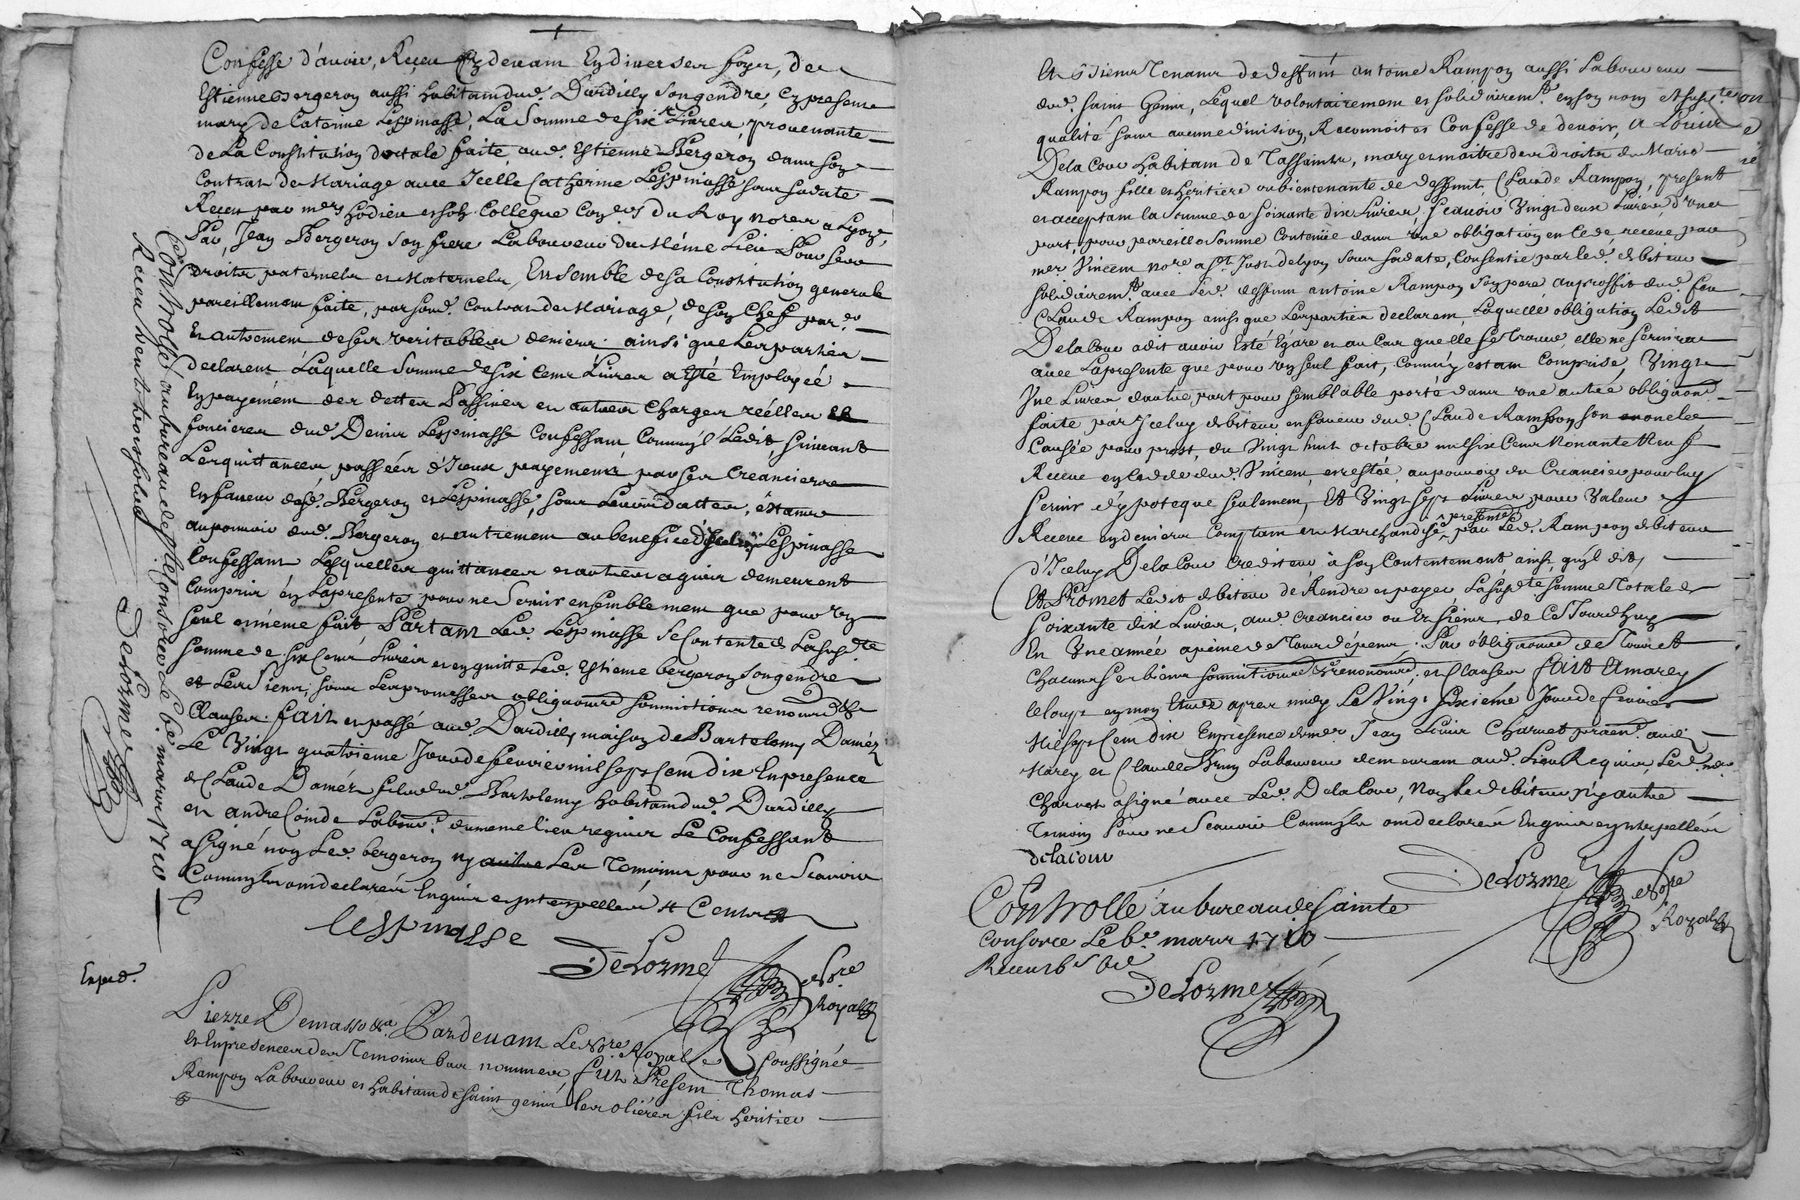 Confesse d'avoir, Receu Cy devant En diverses foyes, de
Estienne Bergeron aussi habitant dud. Dardilly Son gendre, Cy presente
mary de Caterine Lespinasse, La Somme de six Livres, provenante
de La Constitution dottale faite, aud. Estienne Bergeron dans Son
Contrat de Mariage avec Icelle Catherine Lespinasse sous sa date
Receu par mes hodieu et son Collegue Con.ers du Roy no.res a Lyon,
Par, Jean Bergeron Son frere Laboureur du Méme Lieu Pour Ses
droits paternels et Maternels, Ensemble de sa Constitution generale
pareillement faite, par son d. Contrat de Mariage, de son Chef par.
Et autrement de ses veritables deniers ainsi que Les parties
declarent Laquelle Somme de six Cent Livres a Esté Employée
En payement des dettes Passives et autres Charges réelles
foncieres dud. Denis Lespinasse Confessant Comm'il Ledit, suivant
Les quittances passées d'Iceux payements par Ses Creanciers
En faveur desd. Bergeron et Lespinasse, sous Leurs dattes, éstants
au pouvoir dud. Bergeron et autrement au benefice Lespinasse
Confessant Lesquelles quittances et autres aquis demeurent
Compris én Lapresente pour ne Servir ensemblement que pour un
seul et même fait, Partant Led. Lespinasse Se Contente de Lasusd.te
somme de six Cent Livres et en quitte Led. Estienne bergeron Son gendre
et Les Siens, sous Les promesses obligations soumissions renon.ons &
Clauses. fait et passé aud. Dardilly maison de Bartelemy Daméz
Le Vingt quatrieme Jour de fevrier mil sept Cent dix En presence
de Claude Daméz fils dud. Bartelemy habitant dud. Dardilly
et andre Coinde Labour.r du meme lieu requis Le Confessant
a signé non Led. bergeron ny Les Temoins pour ne Scavoir
Comm'ils ont declaré de ce Enquis et Interpellés
Lespinasse
DeLorme
no.re
Royal
Controllé au bureau de
Le 6e. mars 1710
Receu trente trois sols
DeLorme
Exped.
Pardevant Le No.re Royal soussignée
et En presence des Temoins bas nommés, fut Present Thomas
Rampon Laboureur et habitant de saint genis Les oliéres fils heritier
Et bien Tenant de deffunt antoine Rampon aussi Laboureur
dud. saint Genis, Lequel volontairement et solidairem.t en son nom et susd.te
qualité sans aucune division, Reconnoit et Confesse de devoir, A Loüis
Delacour habitant de Tassains, mary et maitre des droits de Marie
Rampon fille et heritiere ou bientenante de deffunt, Claude Rampon, present
et acceptant la Somme de soixante dix Livres, scavoir Vingt deux Livres, d'une
part, pour pareille Somme Contenüe dans une obligation receue par
me. Vincent no.re a S.t Just de Lyon sous sa date, Consentie par led. debiteur
solidairem.t avec led. deffunt antoine Rampon Son pere au proffit dud. feu
Claude Rampon ainsi que Les parties declarent, Laquelle obligation Ledit
Delacour a dit avoir Esté Egaré et au Cas qu'elle Se Trouve, elle ne servira
avec La presente que pour un seul fait, Comm'y estant Comprise, Vingt
Une Livres d'autre part pour semblable porté dans une autre obligaon
faite par Iceluy debiteur en faveur dud. Claude Rampon Son oncle
Causée pour prest, du Vingt huit octobre mil six Cent Nonante Neuf
Receue dud. Vincent, et restée, au pouvoir du Creancier pour luy
Servir d'ypoteque seulement, Et Vingt sept Livres pour Valeur
Receue en deniers Comptant et Marchandise presentée par Led. Rampon debiteur
d'Iceluy Delacour Crediteur à Son Contentement ainsi qu'il dit,
Et Promet Ledit debiteur de Rendre et payer La susd.te Somme Totale de
Soixante dix Livres, aud. Creancier ou Es Siens, de Ce Jourdhuy
En Une année a peine de Tous dépens, Par obligaõns de Tous et
Chacuns Ses biens soumissions renonons et Clauses fait A marcy
le loup en mon Etude apres midy Le Vingt sixiéme Jour de fevrier
Mil sept Cent dix En presence de mr. Jean Loüis Charvet praen. aud.
Marcy et Claude Brun Laboureur demeurant aud. Lieu Requis, Led. mr.
Charvet a signé avec Led. Delacour, Non led. debiteur Ny autre
Temoin Pour ne Scavoir Comm'ils ont declaré Enquis et Interpellés
delacour
DeLorme
no.re
Royal
Controllé au bureau de Sainte
Consorce Le 6e. mars 1710
Receu
DeLorme